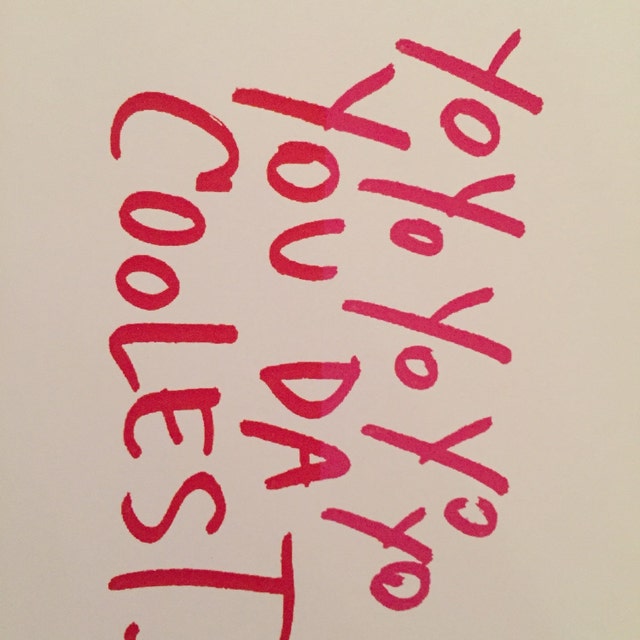 YoYo Yo Yo Yo
YOU DA
COOLEST.